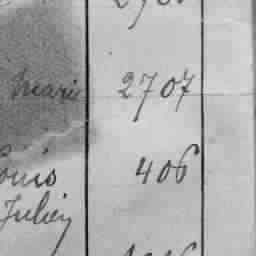 Marie 2707
Louis 406
Julien